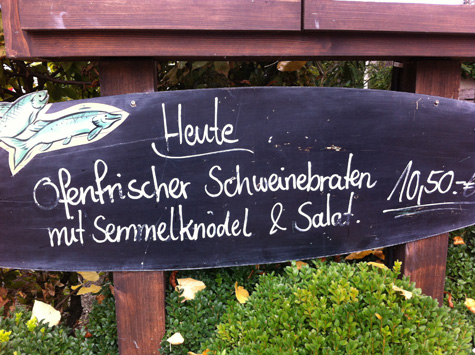 Heute
Ofenfrischer Schweinebraten 10,50.-€
mit Semmelknödel & Salat.